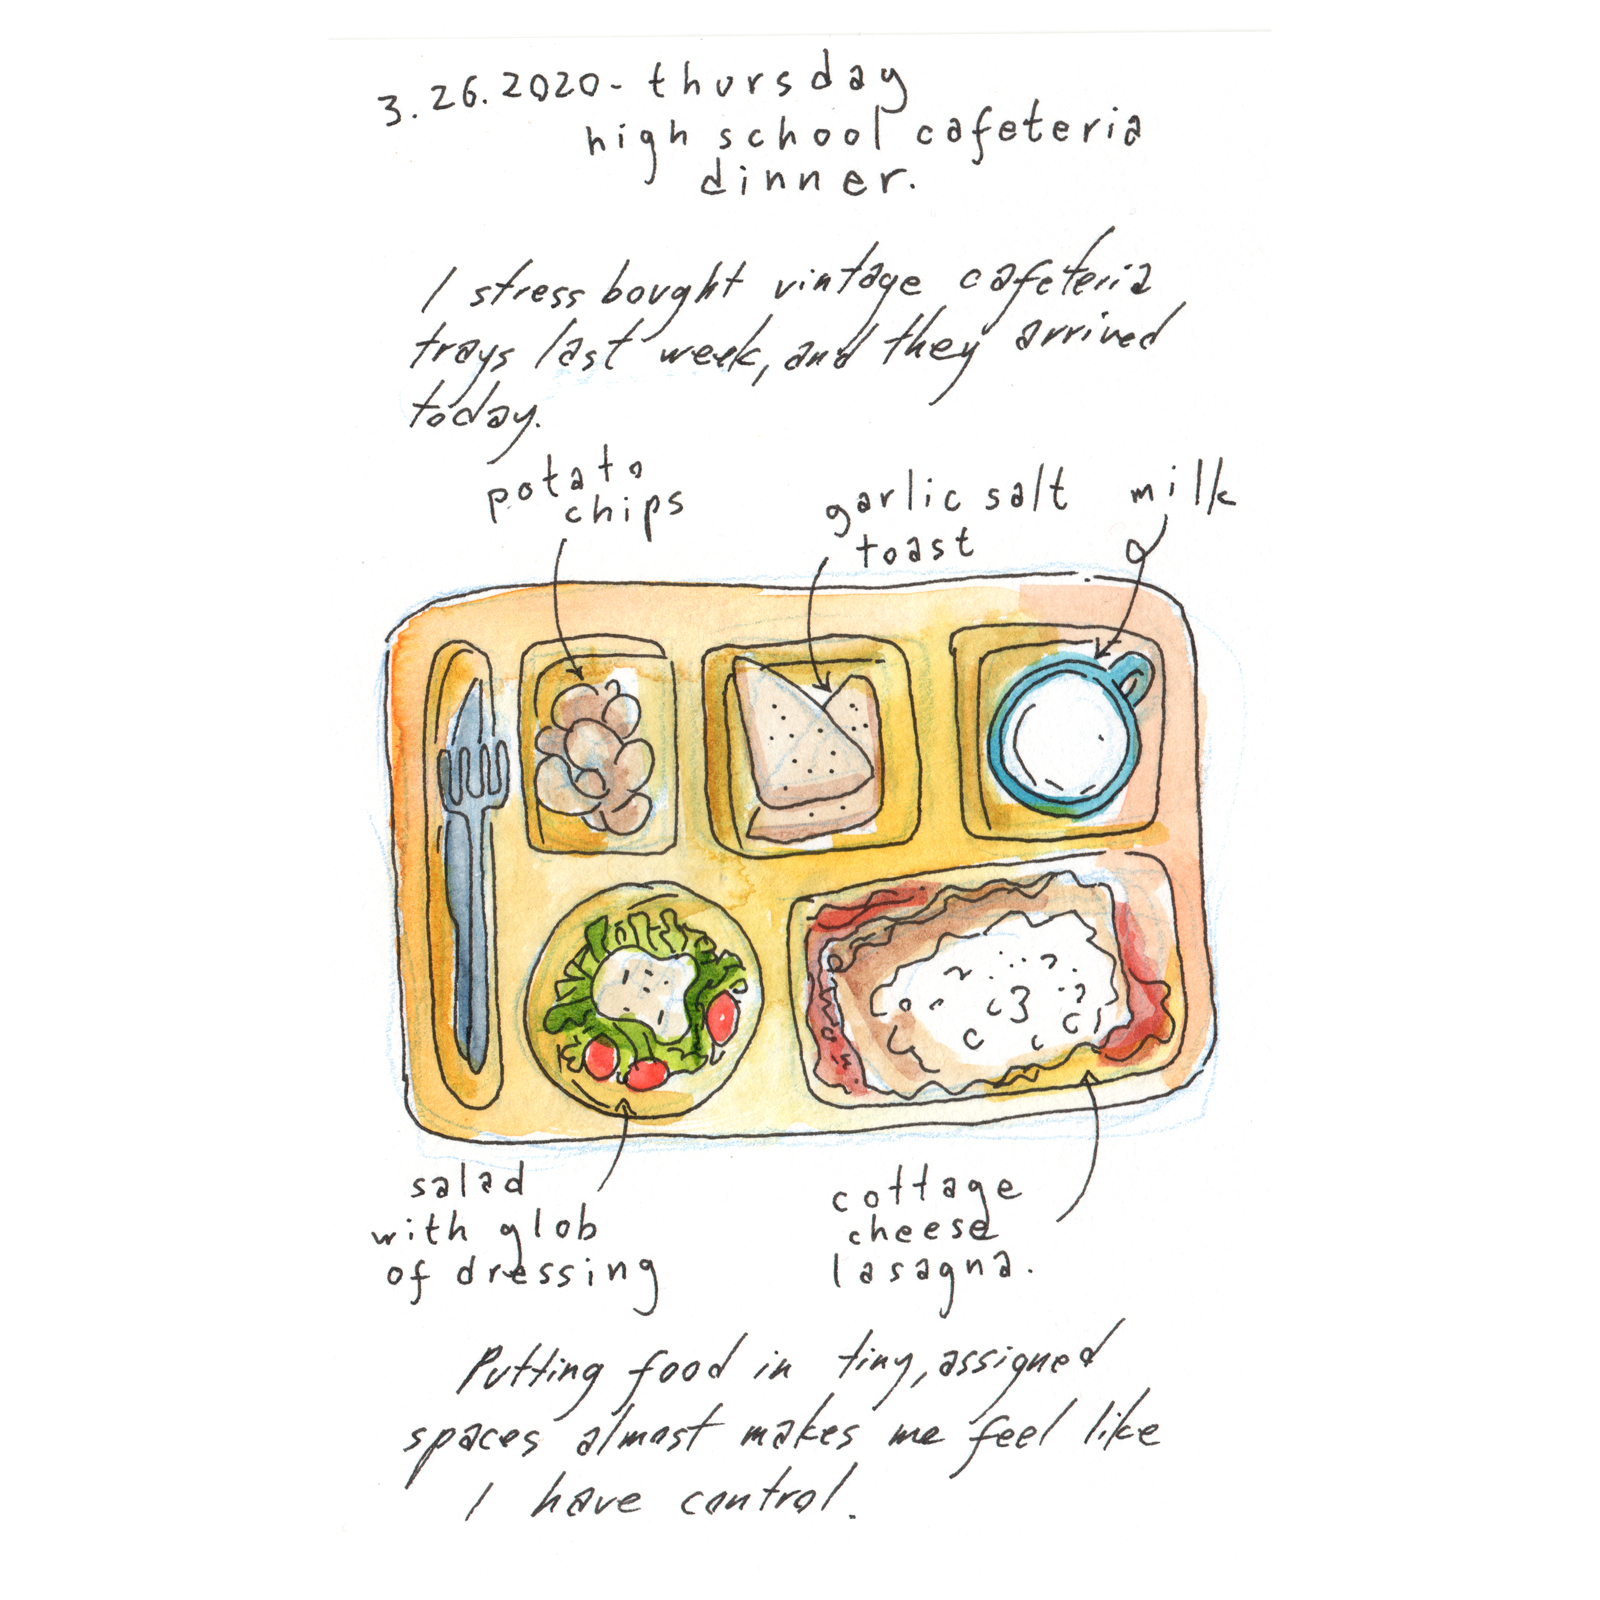 3.26.2020- thursday
high school cafeteria
dinner.
I stress bought vintage cafeteria
trays last week, and they arrived
today.
potato
chips
garlic salt
toast
milk
salad
with glob
of dressing
cottage
cheese
lasagna.
Putting food in tiny, assigned
spaces almost makes me feel like
I have control.